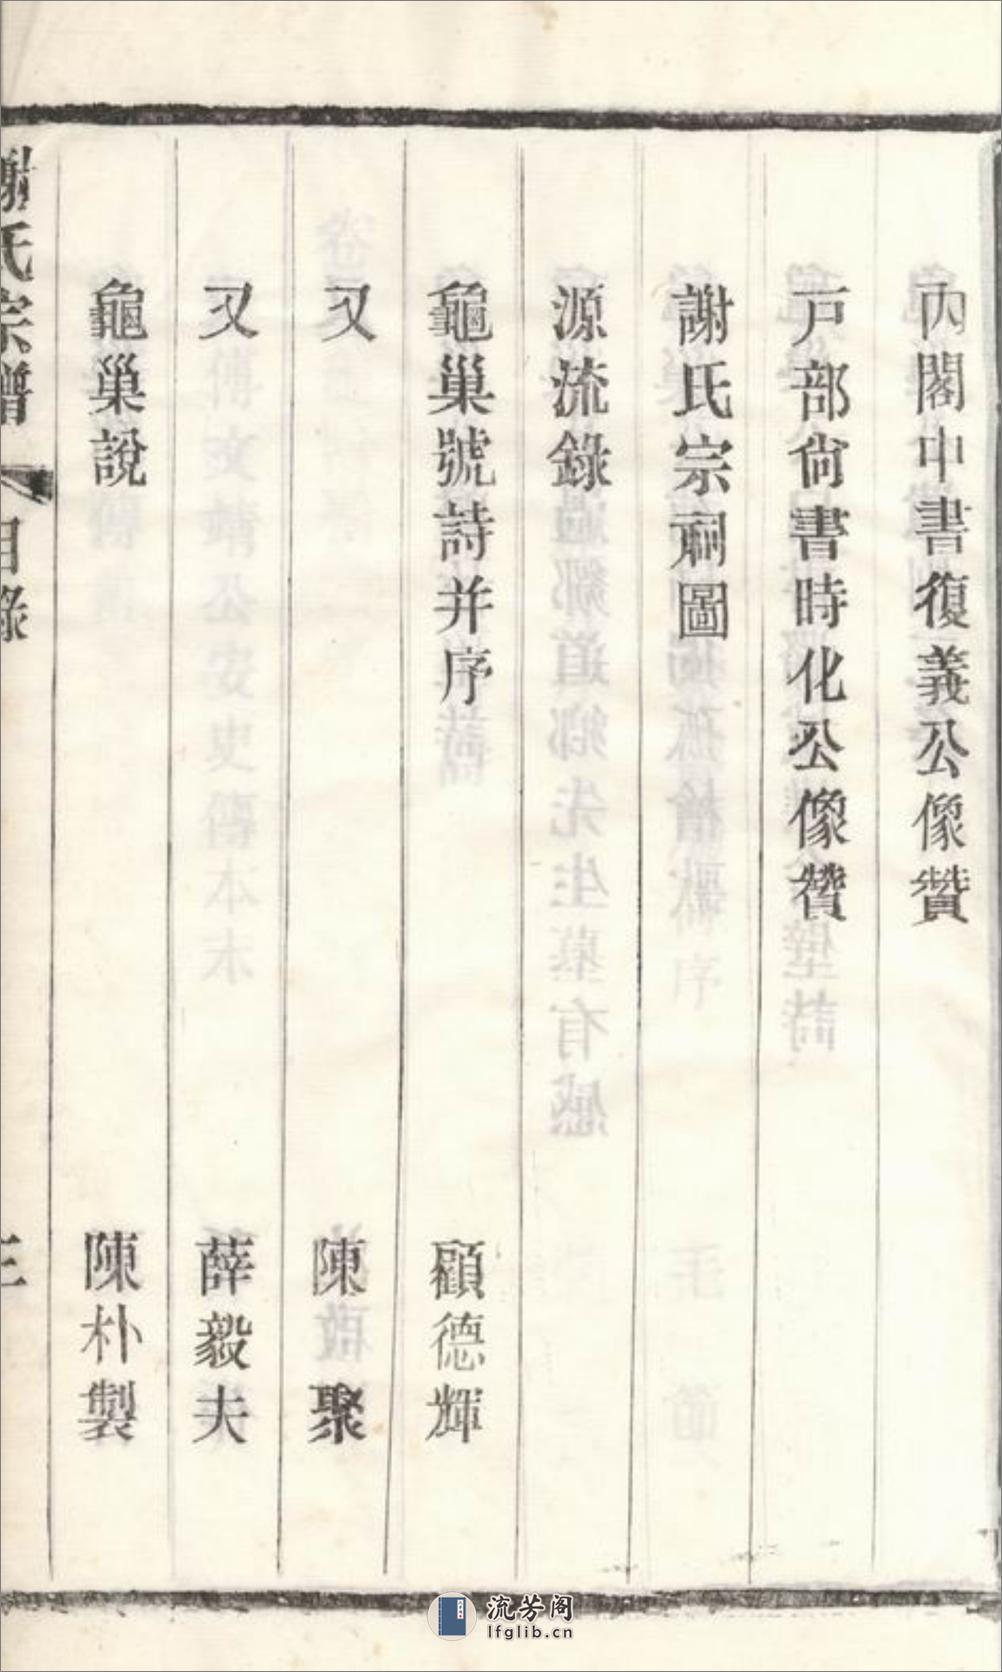 內閣中書復義公像贊
戶部尚書時化公像贊
謝氏宗祠圖
源流錄
龜巢號詩并序 顧德輝
又 陳聚
又 薛毅夫
龜巢說 陳朴製
謝氏宗譜 目錄 三
流芳阁
lfglib.cn